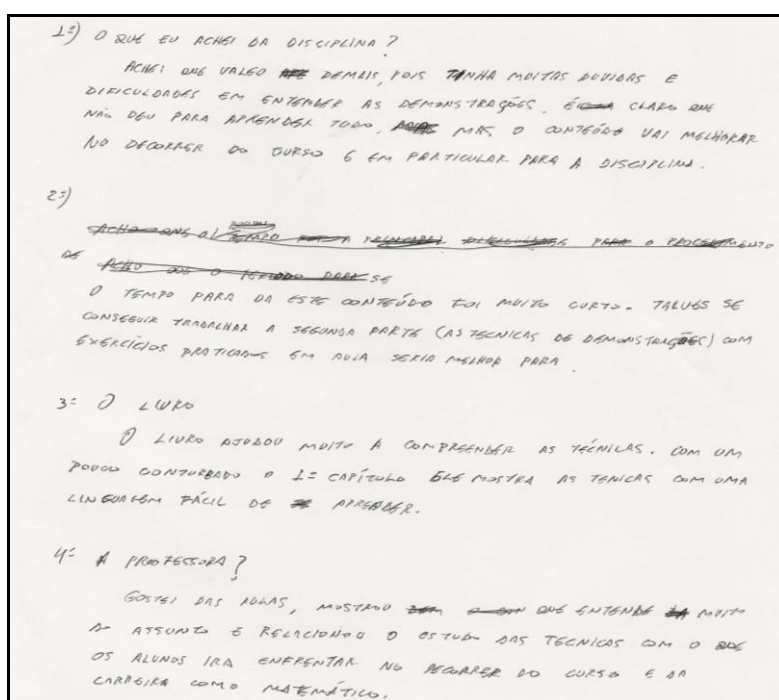 1º) O QUE EU ACHEI DA DISCIPLINA?
ACHEI QUE VALEO DEMAIS, POIS TINHA MUITAS DUVIDAS E
DIFICULDADES EM ENTENDER AS DEMONSTRAÇÕES. É CLARO QUE
NÃO DEU PARA APRENDER TUDO, MAS O CONTEÚDO VAI MELHORAR
NO DECORRER DO CURSO E EM PARTICULAR PARA A DISCIPLINA.
2º)
ACHO QUE O TEMPO PARA O
DE ACHO QUE O PERIODO PARA SE
O TEMPO PARA DA ESTE CONTEÚDO FOI MUITO CURTO. TALVES SE
CONSEGUIR TRABALHAR A SEGUNDA PARTE (AS TECNICAS DE DEMONSTRAÇÕES) COM
EXERCÍCIOS PRATICADOS EM AULA SERIA MELHOR PARA.
3º O LIVRO
O LIVRO AJUDOU MUITO A COMPREENDER AS TÉCNICAS. COM UM
POUCO CONTURBADO O 1º CAPÍTULO ELE MOSTRA AS TENICAS COM UMA
LINGUAGEM FÁCIL DE APREDER.
4º A PROFESSORA?
GOSTEI DAS AULAS, MOSTROU QUE ENTENDE MUITO
ASSUNTO E RELACIONOU O ESTUDO DAS TECNICAS COM O QUE
OS ALUNOS IRA ENFRENTAR NO DECORRER DO CURSO E DA
CARREIRA COMO MATEMÁTICO.